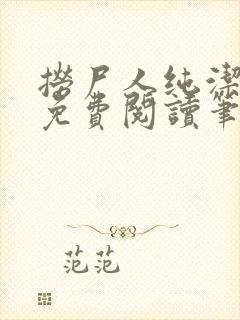 撈尸人純潔
免費閱讀筆
范范